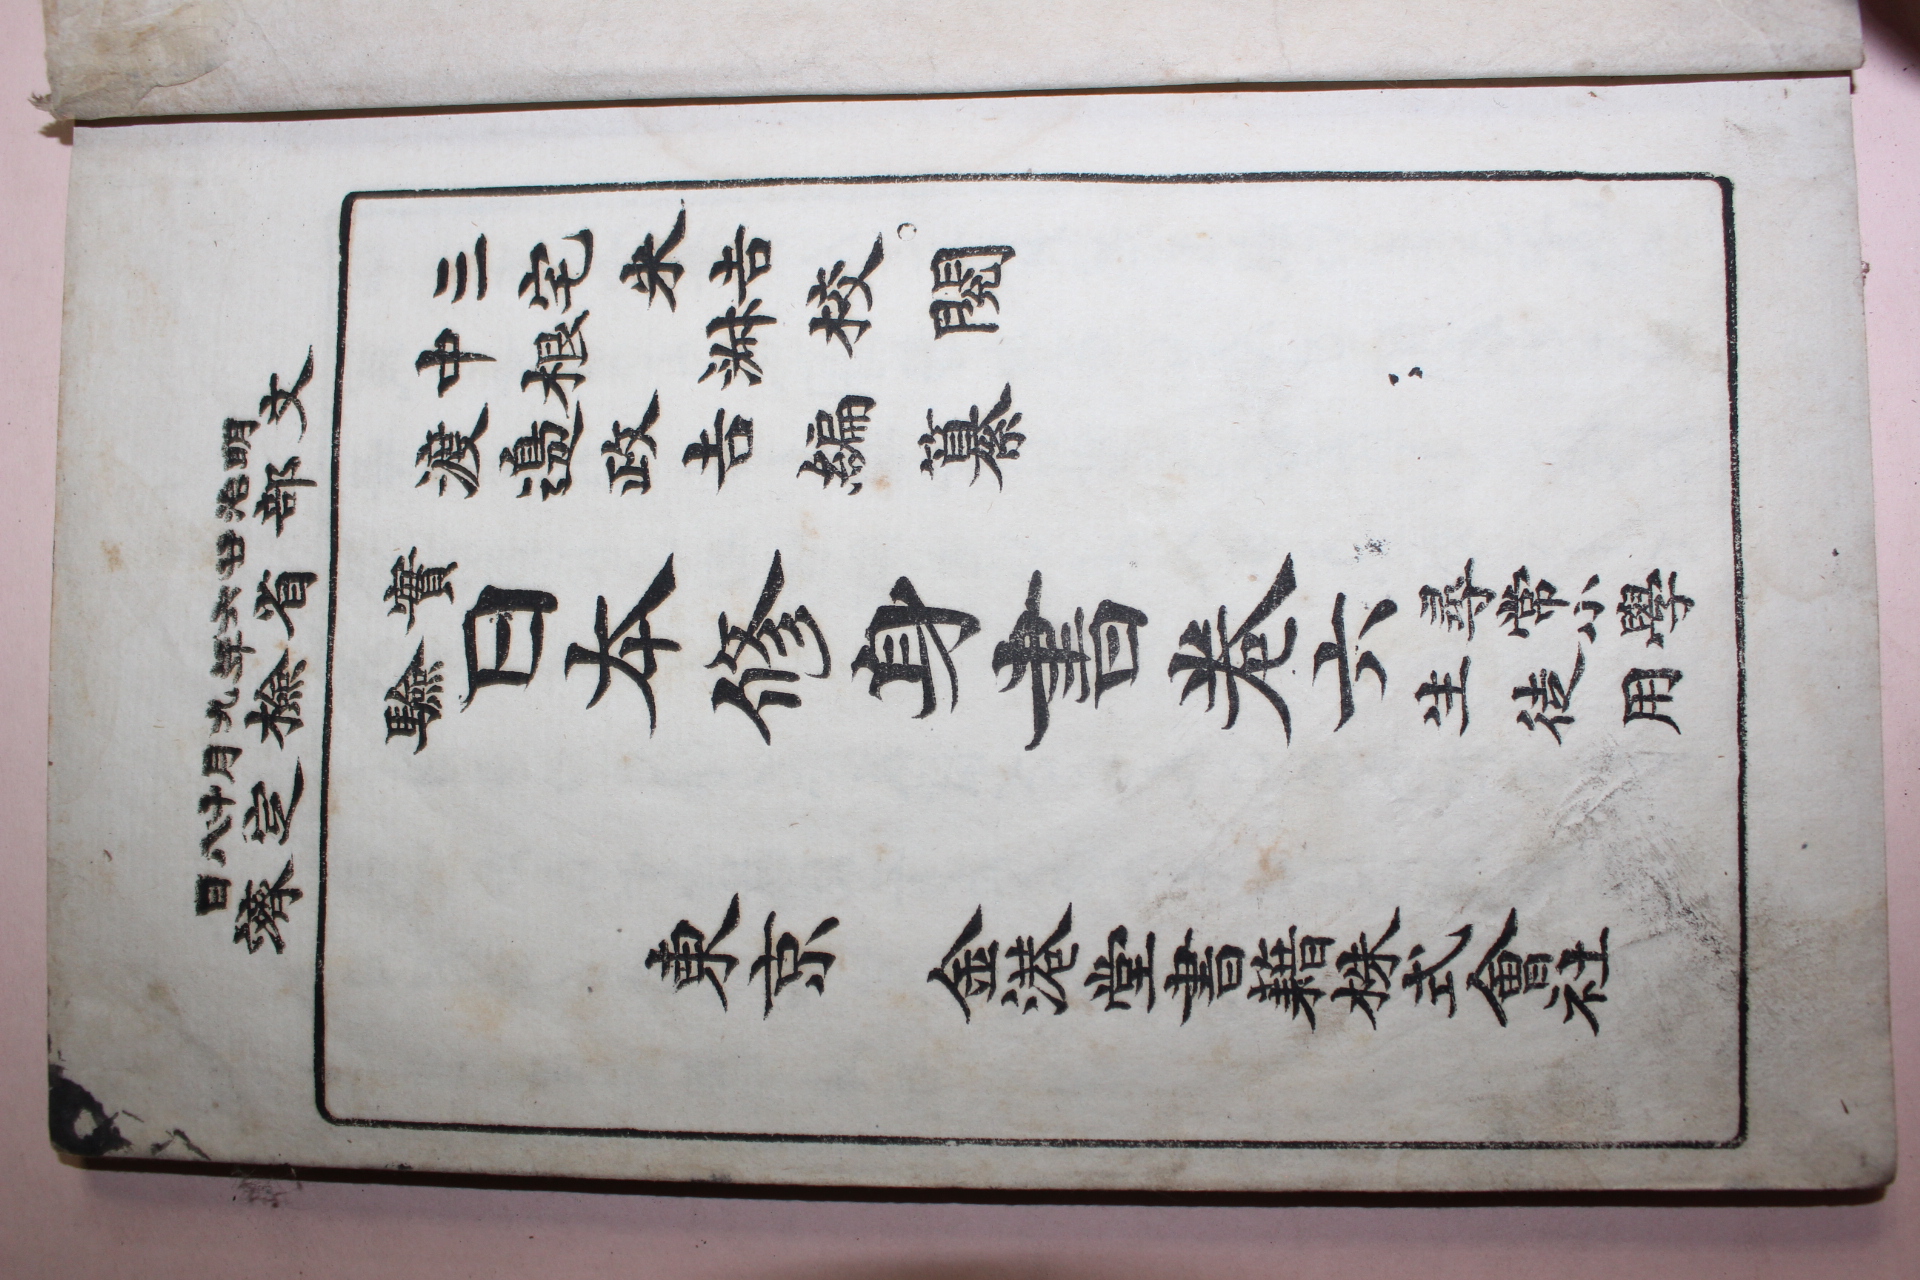 明治廿六年九月十八日
文部省檢定濟
三宅米吉
中根淑
校閲
渡邉政吉編纂
實驗
日本修身書卷六
尋常小學
生徒用
東京 金港堂書籍株式會社